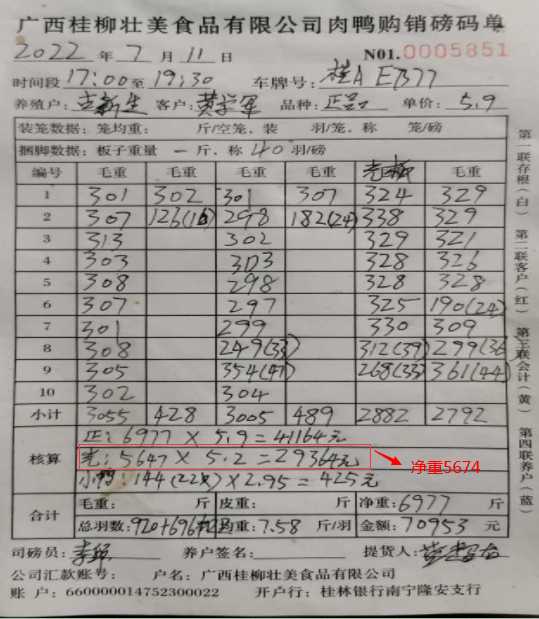 广西桂柳壮美食品有限公司肉鸭购销磅码单
2022 年 7 月 11 日 NO1.0005851
时间段 17:00 至 19:30 车牌号: 桂A EB77
养殖户: 客户: 品种: 正 单价: 5.9
装笼数据: 笼均重: 斤/空笼、装 羽/笼、称 笼/磅
捆脚数据: 板子重量 一 斤、称 40 羽/磅
编号 毛重 毛重 毛重 毛重 毛重
1 301 302 301 307 324 329
2 307 126(16) 298 182(24) 338 329
3 313 302 329 321
4 303 303 328 326
5 308 298 328 328
6 307 297 325 190(24)
7 301 299 330 309
8 308 249(33) 312(39) 299(36
9 305 354(47) 268(33) 361(44)
10 302 304
小计 3055 428 3005 489 2882 2792
核算 正: 6977 × 5.9 = 41164元
光: 5647 × 5.2 = 29364元
净重5674
小鸭: 144 (22只) × 2.95 = 425元
合计 毛重: 斤 皮重: 斤 净重: 6977 斤
总羽数: 920+696 重: 7.58 斤/羽 金额: 70953 元
司磅员: 养户签名: 提货人:
公司汇款账号: 户名: 广西桂柳壮美食品有限公司
账 户: 660000014752300022 开户行: 桂林银行南宁隆安支行
第一联存根(白) 第二联客户(红) 第三联会计(黄) 第四联养户(蓝)